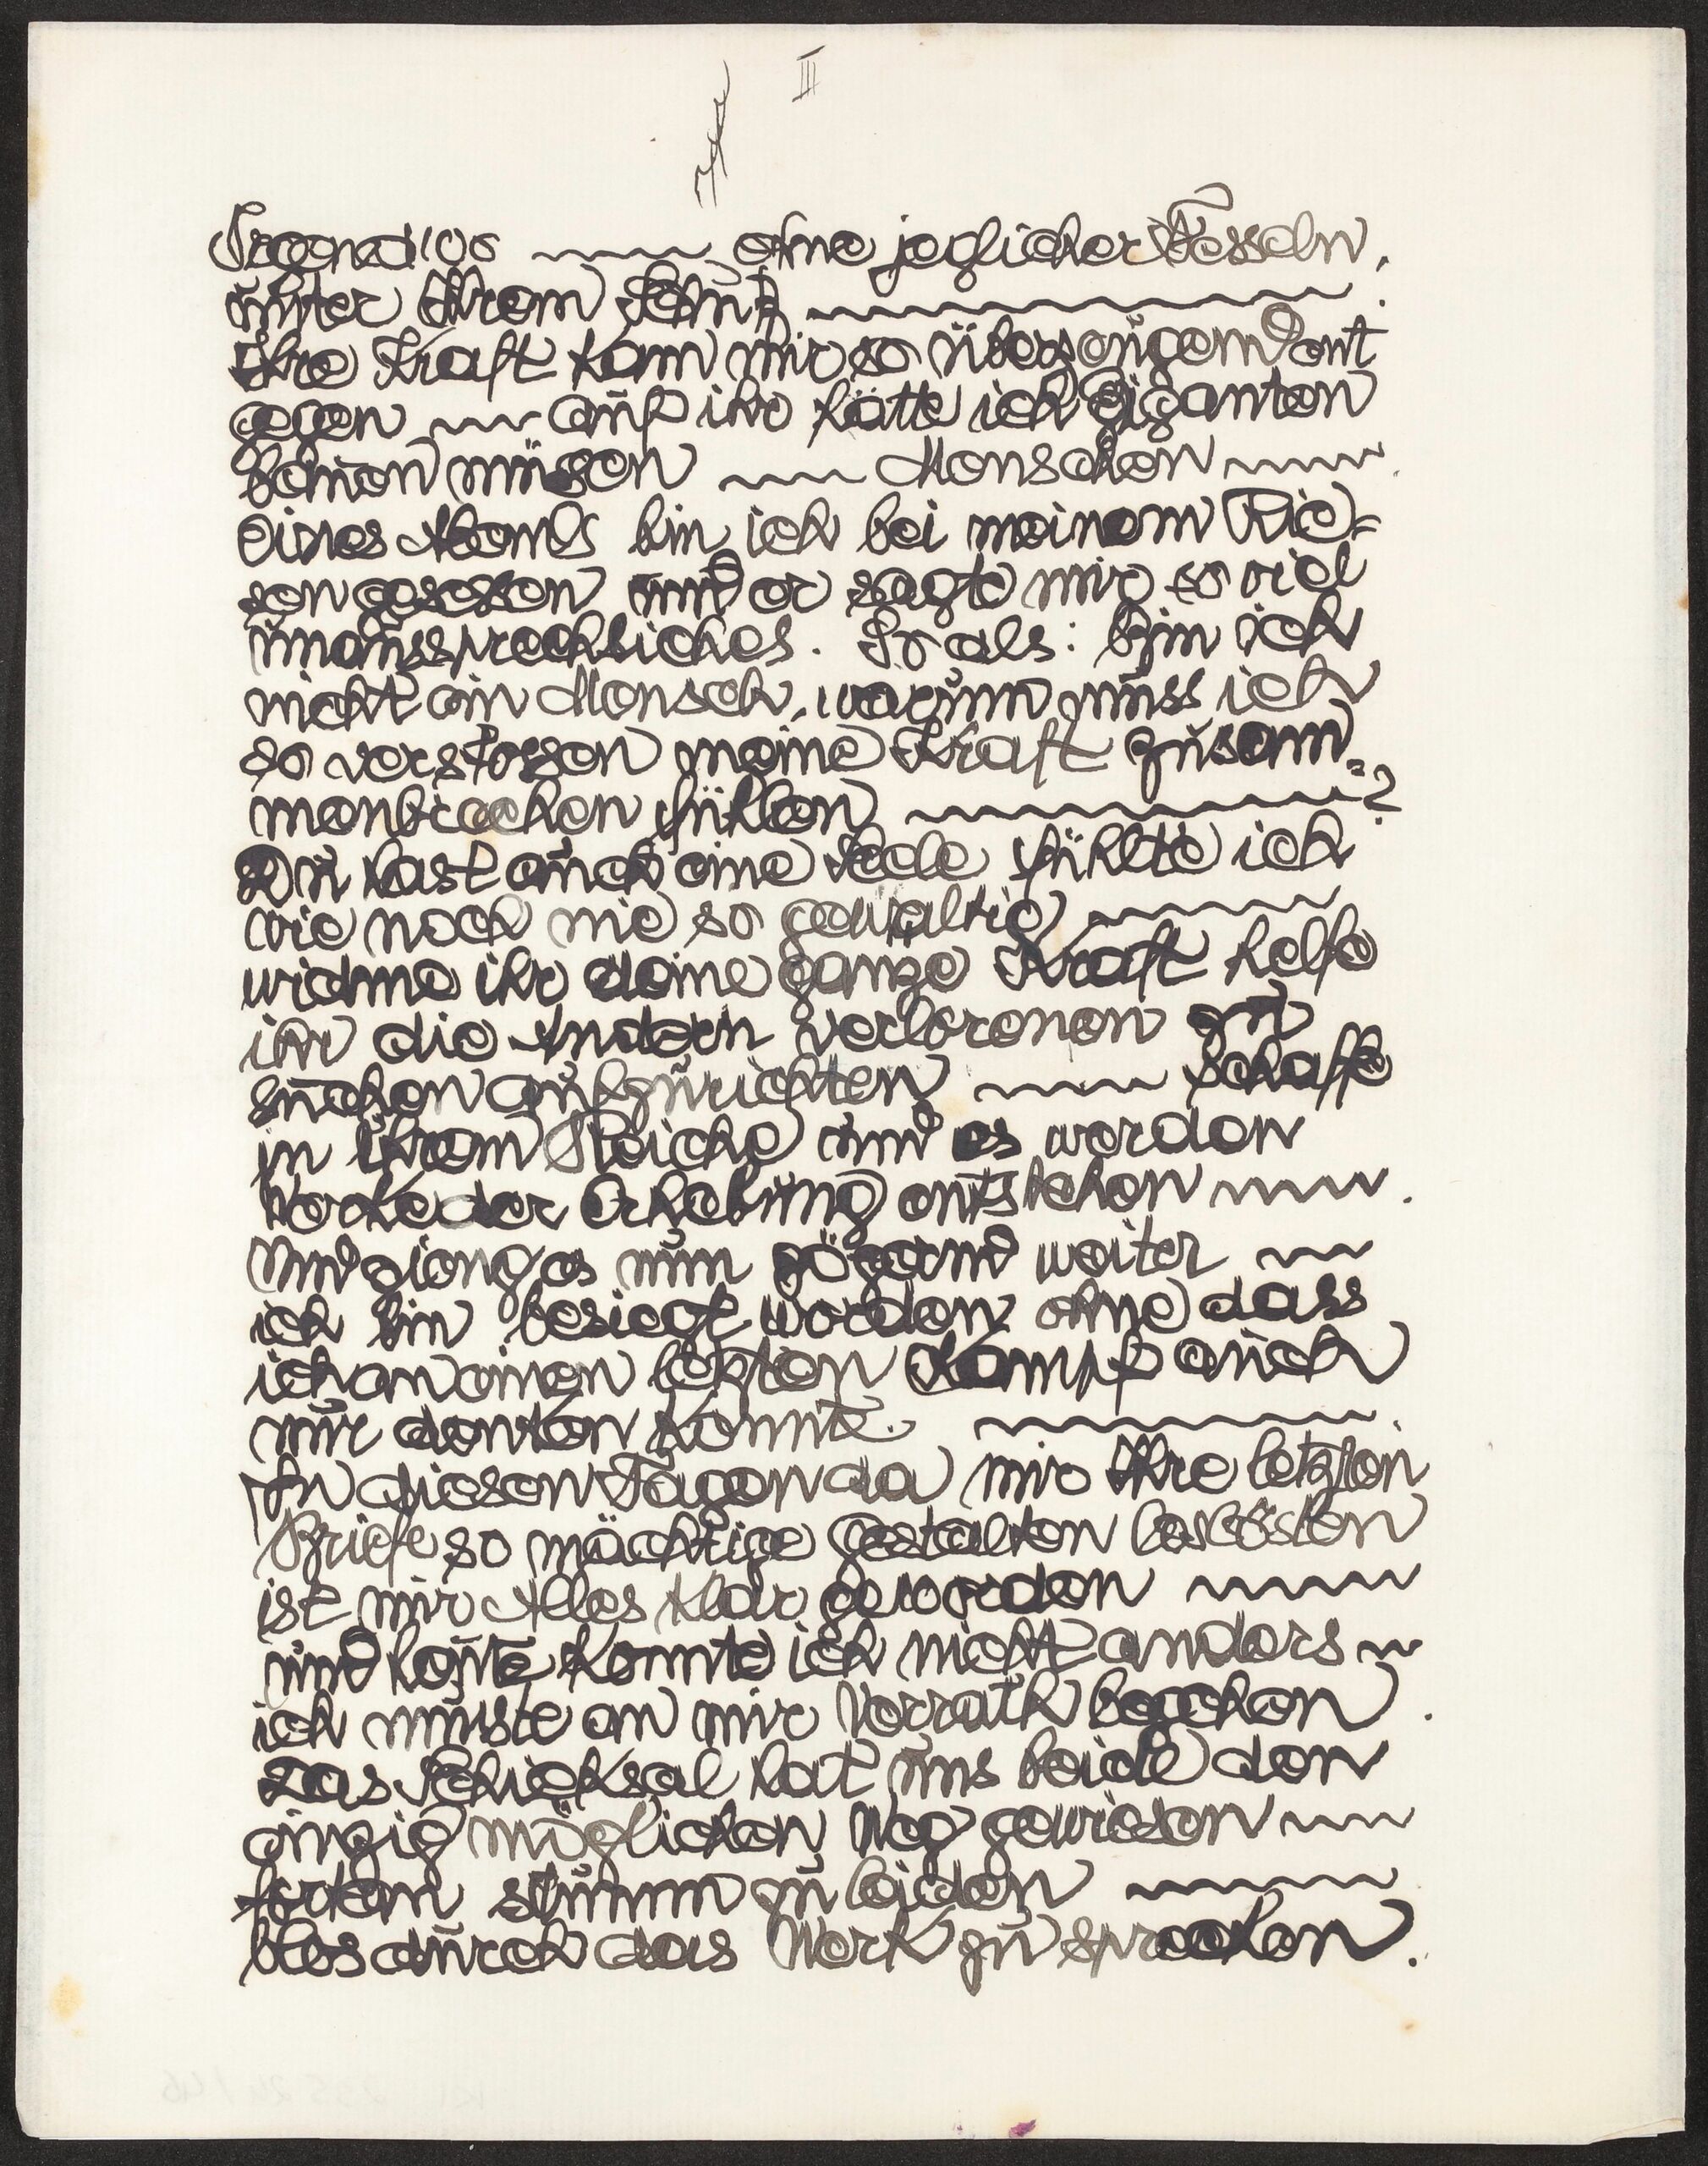 III
ohne jeglicher Fesseln,
unter Ihrem Schutz
Ihre Kraft kam mir so überzeugend ent
gegen auf ihr hätte ich Giganten
bauen müssen Menschen
Eines Abends bin ich bei meinem Rie=
sen gesessen und er sagte mir so viel
unausprechliches. So als: bin ich
nicht ein Mensch, warum muss ich
so verstossen meine Kraft zusam=
menbrechen fühlen ?
Du hast auch eine Seele fühlte ich
wie noch nie so gewaltig
widme ihr deine ganze Kraft helfe
ihr die Andern verlorenen zu
suchen aufzurichten schaffe
in Ihrem Reiche und es werden
Werke der Erhebung entstehen .
Und gieng es nun zögernd weiter
ich bin besiegt worden ohne dass
ich an einen letzten Kampf auch
nur denken konnte. .
In diesen Tagen da mir Ihre letzten
Briefe so mächtige Gestalten
ist mir Alles klar geworden
und heute konnte ich nicht anders
ich musste an mir Verrath begehen .
Das Schicksal hat uns beide den
einzig möglichen Weg gewiesen
fortan stumm zu leiden
blos durch das Werk zu sprechen.